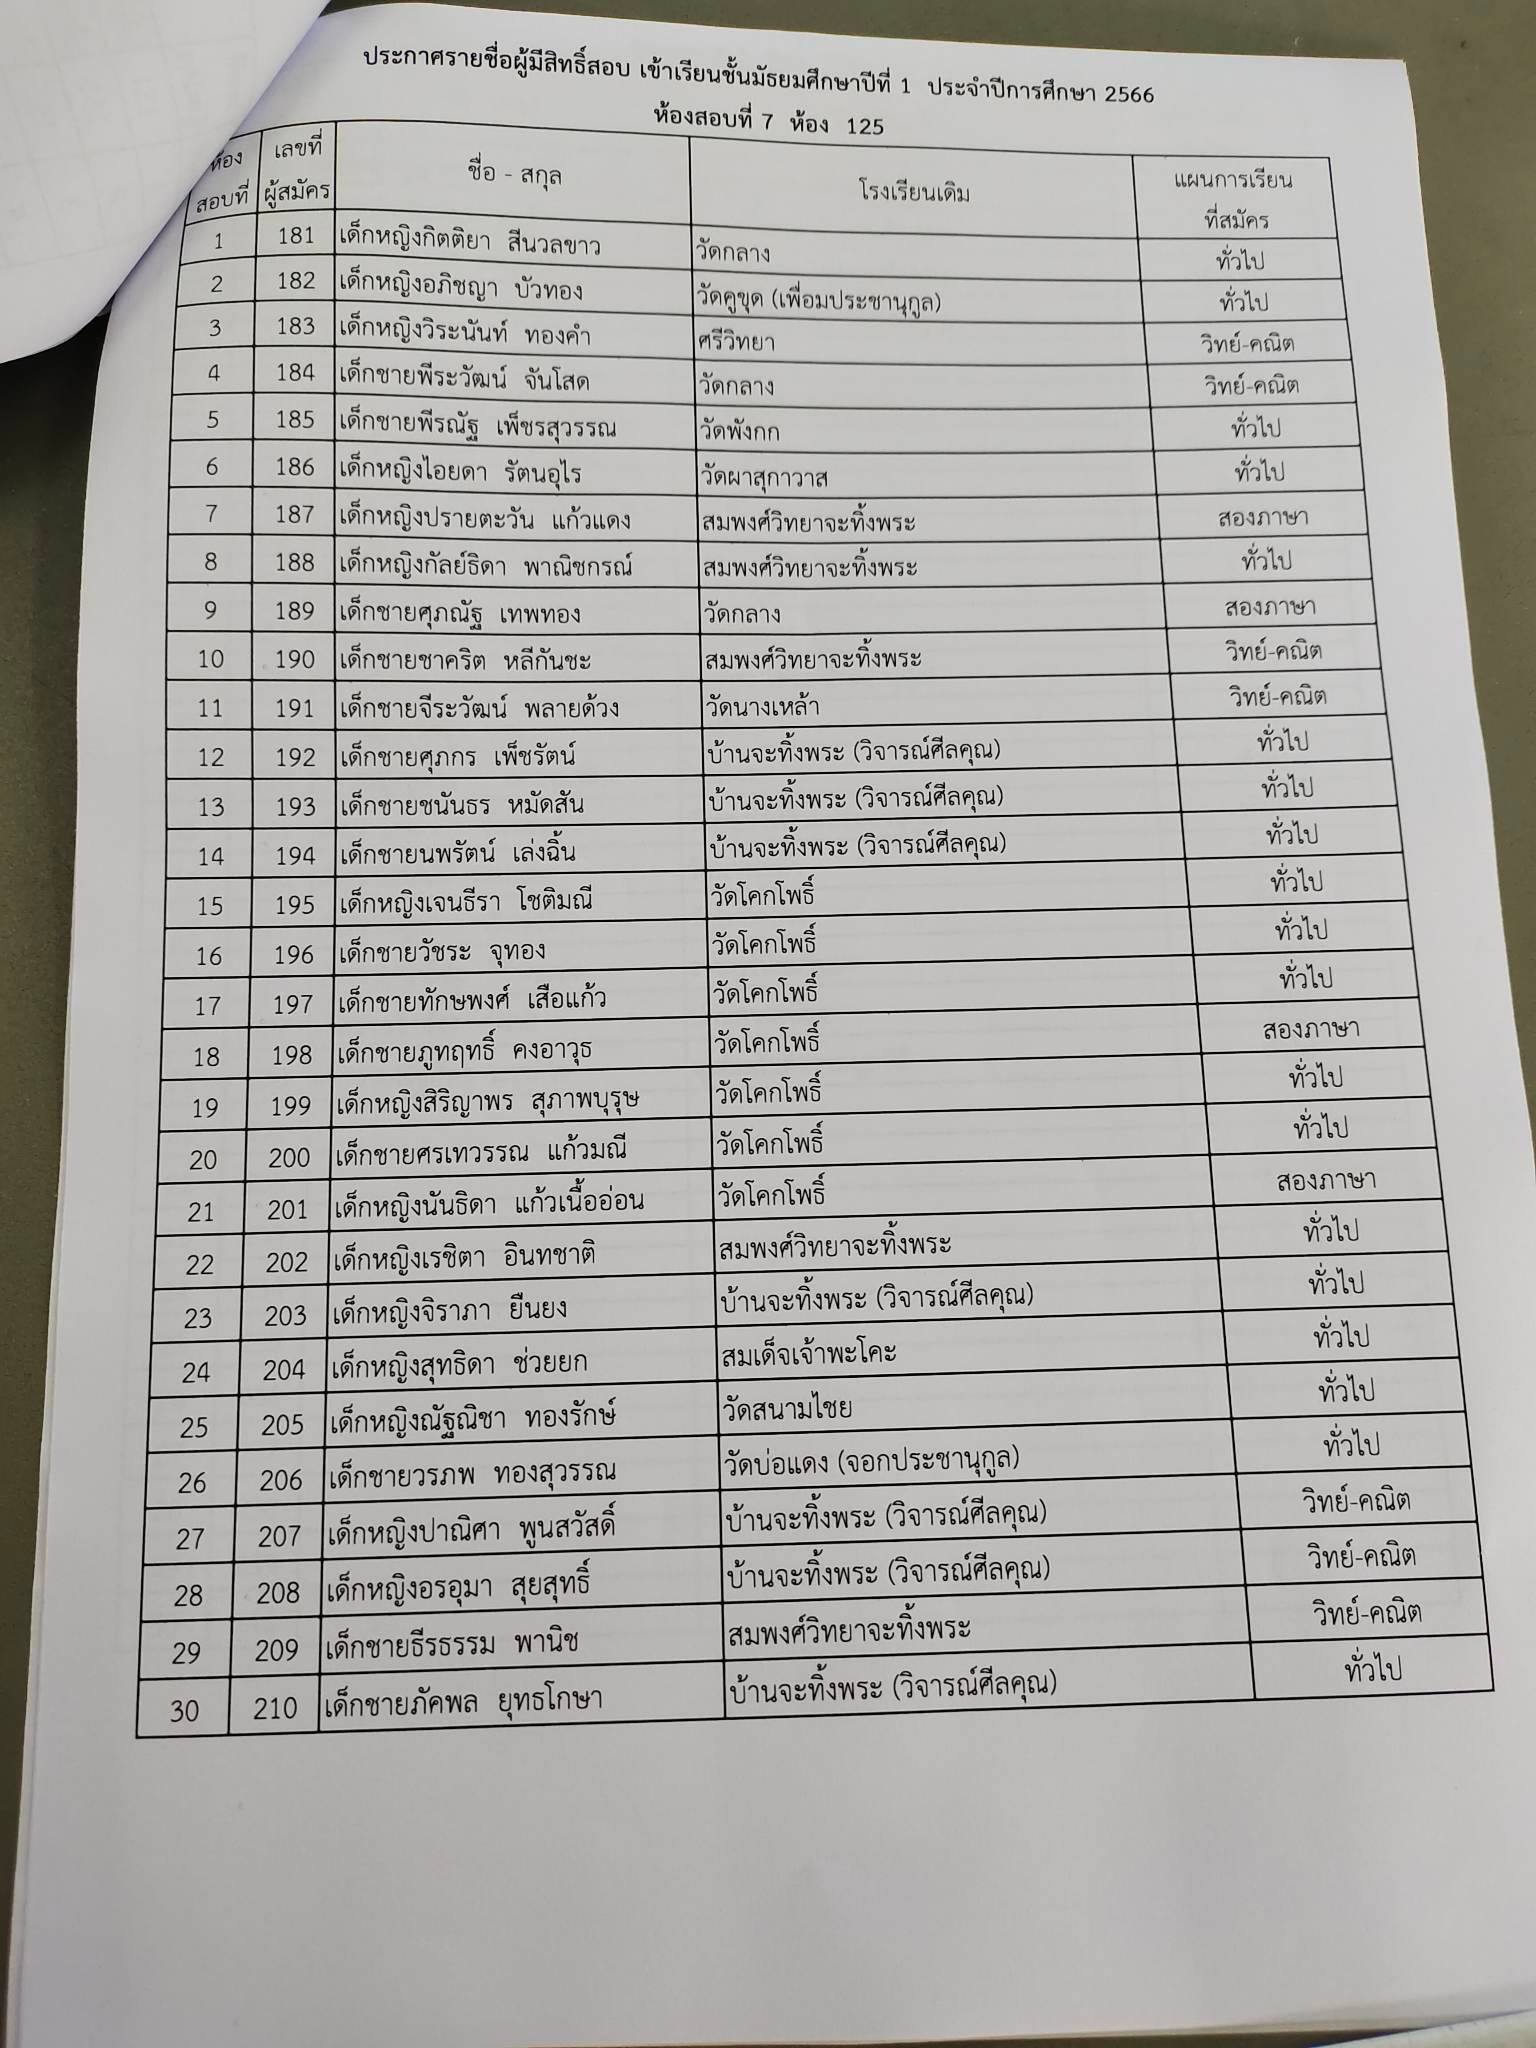 ประกาศรายชื่อผู้มีสิทธิ์สอบ เข้าเรียนชั้นมัธยมศึกษาปีที่ 1 ประจำปีการศึกษา 2566
ห้องสอบที่ 7 ห้อง 125
ห้องสอบที่ เลขที่ผู้สมัคร ชื่อ - สกุล โรงเรียนเดิม แผนการเรียนที่สมัคร
1 181 เด็กหญิงกิตติยา สีนวลขาว วัดกลาง ทั่วไป
2 182 เด็กหญิงอภิชญา บัวทอง วัดคูขุด (เพื่อมประชานุกูล) ทั่วไป
3 183 เด็กหญิงวิระนันท์ ทองคำ ศรีวิทยา วิทย์-คณิต
4 184 เด็กชายพีระวัฒน์ จันโสด วัดกลาง วิทย์-คณิต
5 185 เด็กชายพีรณัฐ เพ็ชรสุวรรณ วัดพังกก ทั่วไป
6 186 เด็กหญิงไอยดา รัตนอุไร วัดผาสุกาวาส ทั่วไป
7 187 เด็กหญิงปรายตะวัน แก้วแดง สมพงศ์วิทยาจะทิ้งพระ สองภาษา
8 188 เด็กหญิงกัลย์ธิดา พาณิชกรณ์ สมพงศ์วิทยาจะทิ้งพระ ทั่วไป
9 189 เด็กชายศุภณัฐ เทพทอง วัดกลาง สองภาษา
10 190 เด็กชายชาคริต หลีกันชะ สมพงศ์วิทยาจะทิ้งพระ วิทย์-คณิต
11 191 เด็กชายจีระวัฒน์ พลายด้วง วัดนางเหล้า วิทย์-คณิต
12 192 เด็กชายศุภกร เพ็ชรัตน์ บ้านจะทิ้งพระ (วิจารณ์ศีลคุณ) ทั่วไป
13 193 เด็กชายชนันธร หมัดสัน บ้านจะทิ้งพระ (วิจารณ์ศีลคุณ) ทั่วไป
14 194 เด็กชายนพรัตน์ เล่งฉิ้น บ้านจะทิ้งพระ (วิจารณ์ศีลคุณ) ทั่วไป
15 195 เด็กหญิงเจนธีรา โชติมณี วัดโคกโพธิ์ ทั่วไป
16 196 เด็กชายวัชระ จุทอง วัดโคกโพธิ์ ทั่วไป
17 197 เด็กชายทักษพงศ์ เสือแก้ว วัดโคกโพธิ์ ทั่วไป
18 198 เด็กชายภูทฤทธิ์ คงอาวุธ วัดโคกโพธิ์ สองภาษา
19 199 เด็กหญิงสิริญาพร สุภาพบุรุษ วัดโคกโพธิ์ ทั่วไป
20 200 เด็กชายศรเทวรรณ แก้วมณี วัดโคกโพธิ์ ทั่วไป
21 201 เด็กหญิงนันธิดา แก้วเนื้ออ่อน วัดโคกโพธิ์ สองภาษา
22 202 เด็กหญิงเรชิตา อินทชาติ สมพงศ์วิทยาจะทิ้งพระ ทั่วไป
23 203 เด็กหญิงจิราภา ยืนยง บ้านจะทิ้งพระ (วิจารณ์ศีลคุณ) ทั่วไป
24 204 เด็กหญิงสุทธิดา ช่วยยก สมเด็จเจ้าพะโคะ ทั่วไป
25 205 เด็กหญิงณัฐณิชา ทองรักษ์ วัดสนามไชย ทั่วไป
26 206 เด็กชายวรภพ ทองสุวรรณ วัดบ่อแดง (จอกประชานุกูล) ทั่วไป
27 207 เด็กหญิงปาณิศา พูนสวัสดิ์ บ้านจะทิ้งพระ (วิจารณ์ศีลคุณ) วิทย์-คณิต
28 208 เด็กหญิงอรอุมา สุยสุทธิ์ บ้านจะทิ้งพระ (วิจารณ์ศีลคุณ) วิทย์-คณิต
29 209 เด็กชายธีรธรรม พานิช สมพงศ์วิทยาจะทิ้งพระ วิทย์-คณิต
30 210 เด็กชายภัคพล ยุทธโกษา บ้านจะทิ้งพระ (วิจารณ์ศีลคุณ) ทั่วไป